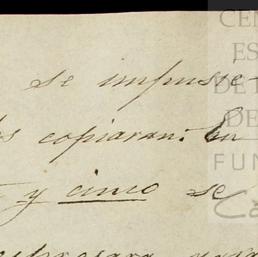 se impusie-
s copiaran. En
y cinco se
CEN
ES
DE
DE
FUN
Ca